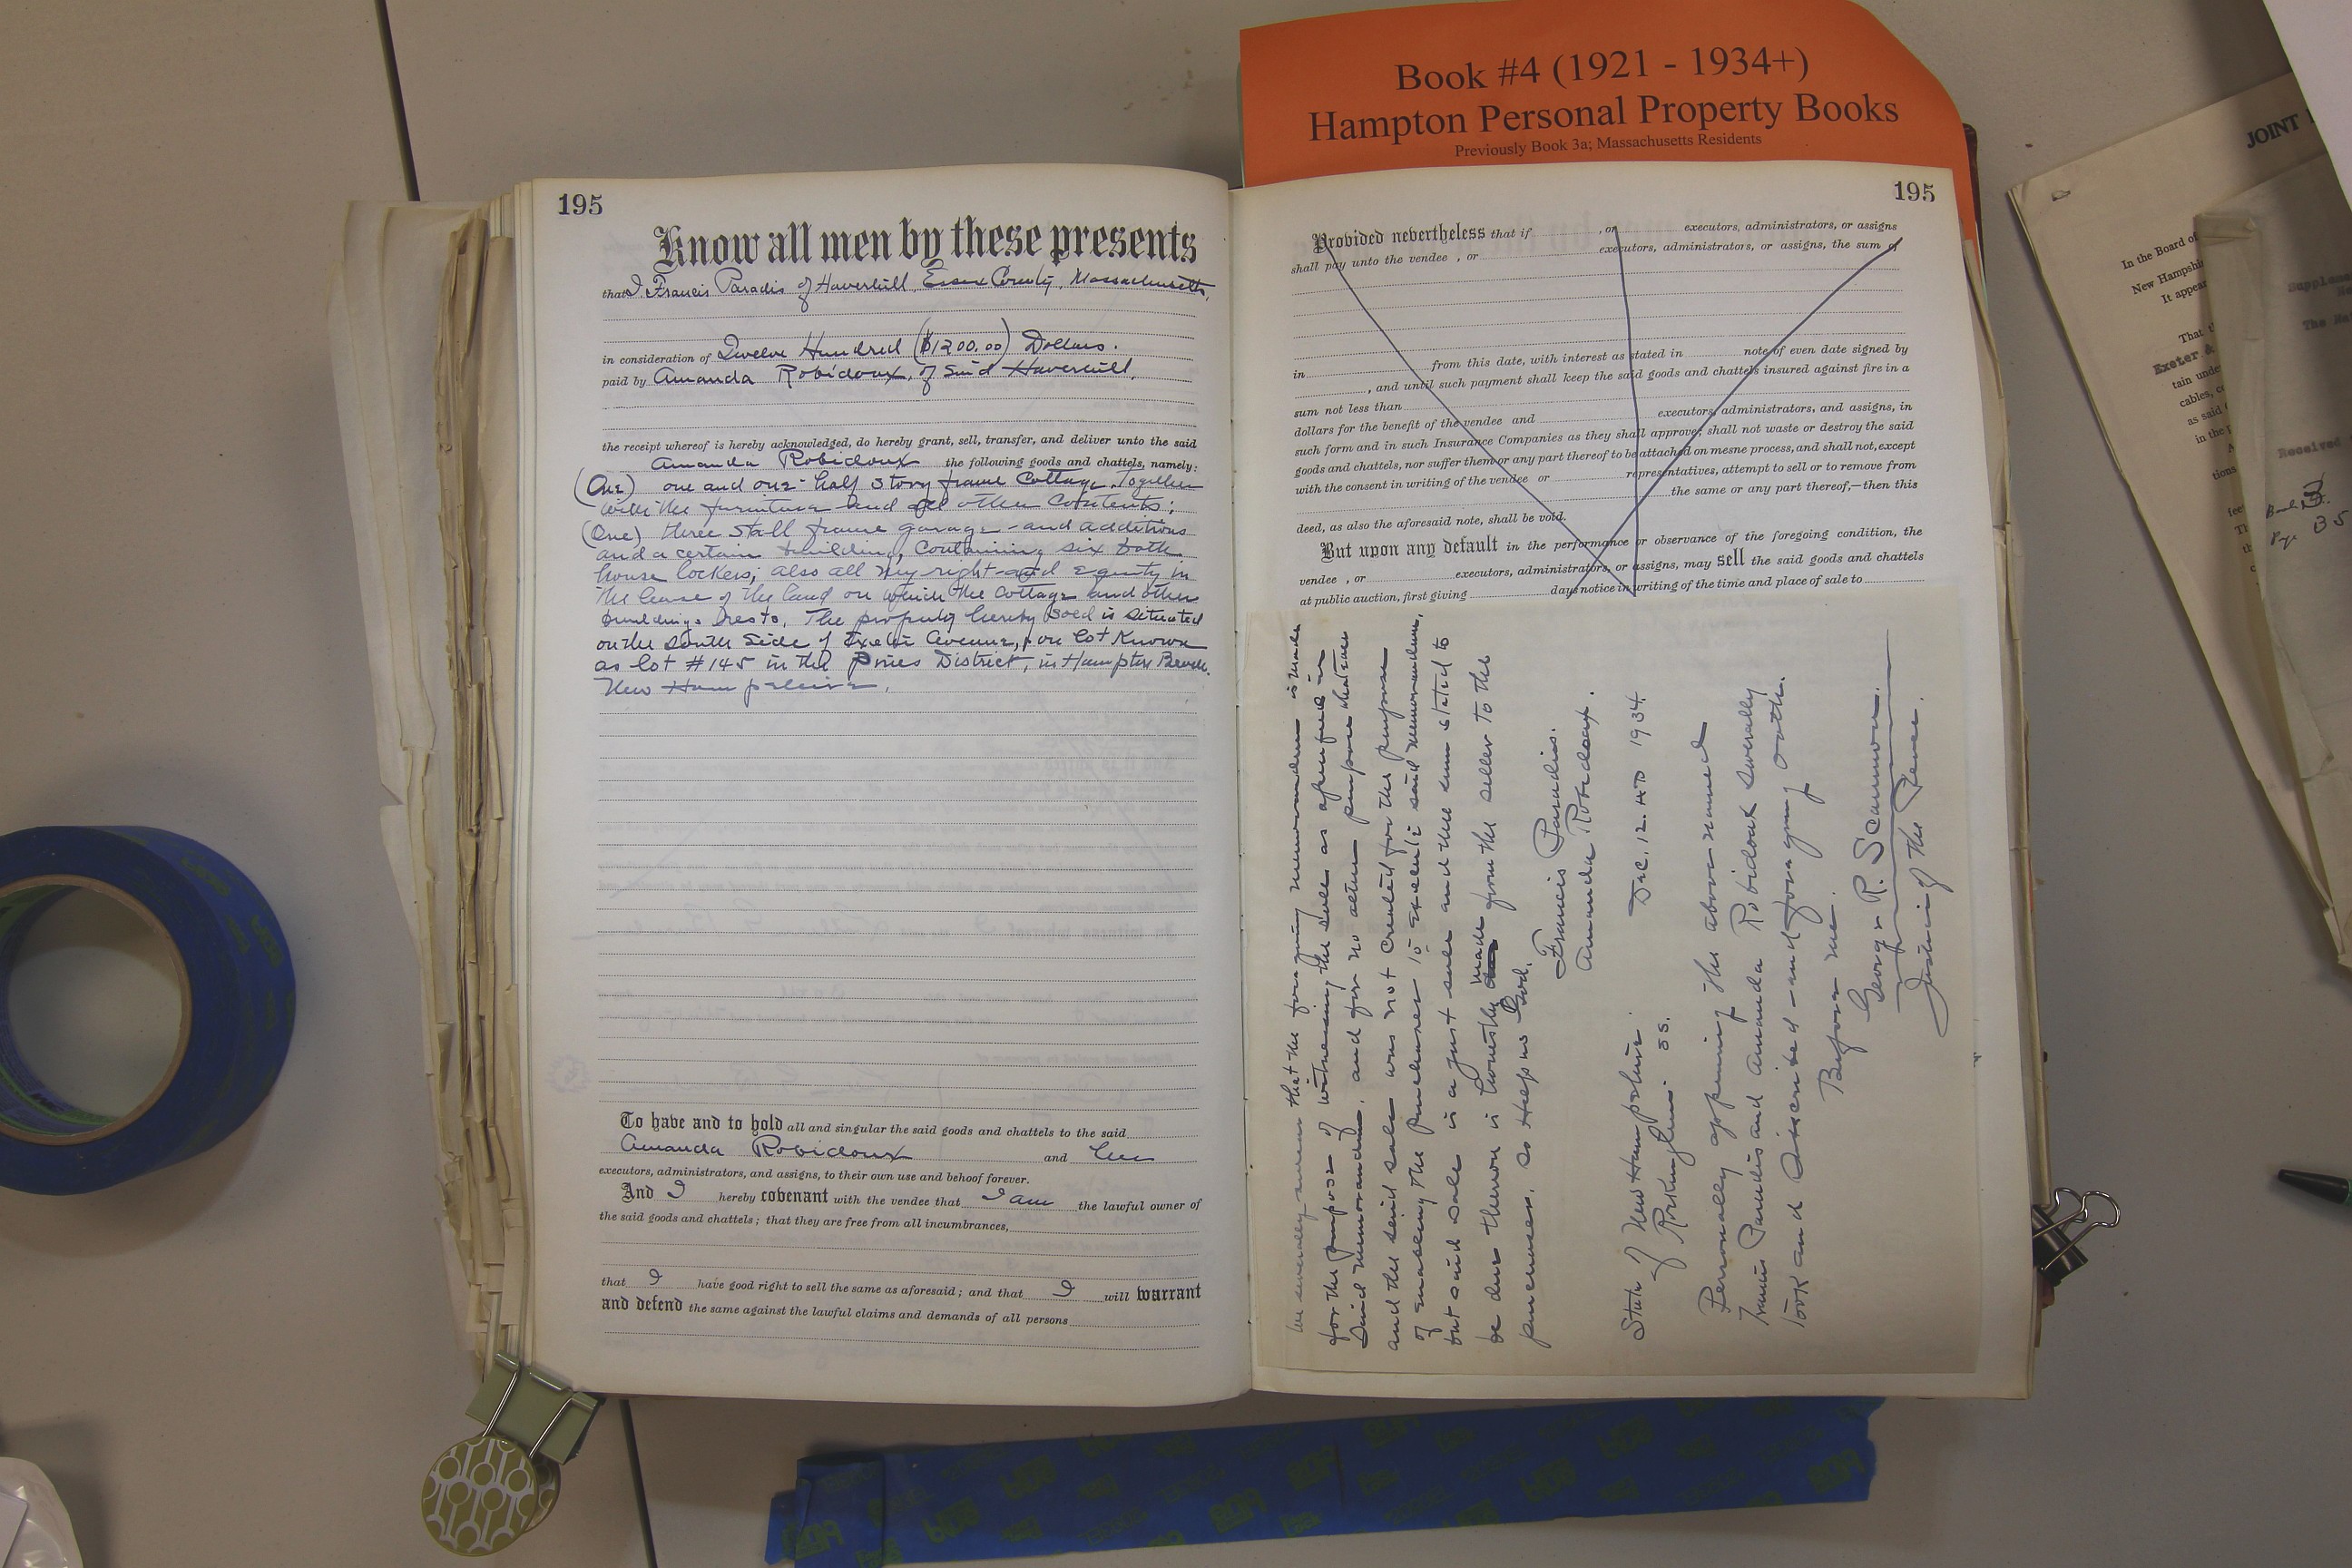 Book #4 (1921 - 1934+)
Hampton Personal Property Books
Previously Book 3a; Massachusetts Residents
195
Know all men by these presents
that I, Francis Paradis of Haverhill, Essex County, Massachusetts,
in consideration of Twelve Hundred ($1200.00) Dollars.
paid by Amanda Robidoux, of said Haverhill,
the receipt whereof is hereby acknowledged, do hereby grant, sell, transfer, and deliver unto the said
Amanda Robidoux the following goods and chattels, namely:
(One) one and one-half story frame Cottage, together
with the furniture and all other contents;
(One) three stall frame garage and additions
and a certain building, containing six bath
house lockers; also all my right and equity in
the lease of the land on which the cottage and other
buildings rests. The property hereby sold is situated
on the South Side of Exeter Avenue, on lot Known
as lot #145 in the Pines District, in Hampton Beach,
New Hampshire.
To have and to hold all and singular the said goods and chattels to the said
Amanda Robidoux and her
executors, administrators, and assigns, to their own use and behoof forever.
And I hereby covenant with the vendee that I am the lawful owner of
the said goods and chattels; that they are free from all incumbrances,
that I have good right to sell the same as aforesaid; and that I will warrant
and defend the same against the lawful claims and demands of all persons
195
Provided nevertheless that if , or executors, administrators, or assigns
shall pay unto the vendee , or executors, administrators, or assigns, the sum of
in from this date, with interest as stated in note of even date signed by
, and until such payment shall keep the said goods and chattels insured against fire in a
sum not less than
dollars for the benefit of the vendee and executors, administrators, and assigns, in
such form and in such Insurance Companies as they shall approve; shall not waste or destroy the said
goods and chattels, nor suffer them or any part thereof to be attached on mesne process, and shall not, except
with the consent in writing of the vendee or representatives, attempt to sell or to remove from
the same or any part thereof,—then this
deed, as also the aforesaid note, shall be void.
But upon any default in the performance or observance of the foregoing condition, the
vendee , or executors, administrators, or assigns, may sell the said goods and chattels
at public auction, first giving days notice in writing of the time and place of sale to
We severally swear that the foregoing memorandum is made
for the purpose of witnessing the sale as specified in
said memorandum, and for no other purpose whatever
and the said sale was not created for the purpose
of enabling the purchaser to execute said memorandum,
but said sale is a just sale and the sum stated to
be due thereon is honestly made from the seller to the
purchaser. So Help us God.
Francis Paradis.
Amanda Robidoux.
State of New Hampshire.
Rockingham SS. Dec. 12. AD 1934
Personally appearing the above named
Francis Paradis and Amanda Robidoux severally
took and subscribed and foregoing oath.
Before me.
George R. Scammon.
Justice of the Peace.
JOINT
In the Board of
New Hampshire
It appear
That t
Exeter &
tain unde
cables, co
as said
in the p
tions
Supplem
The Ha
Received